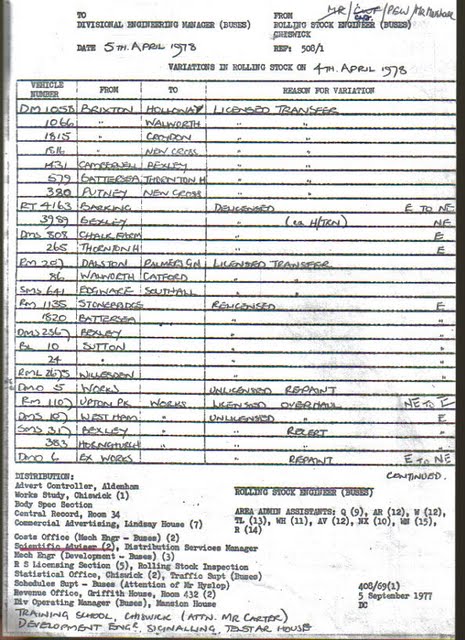 TO FROM MR/
DIVISIONAL ENGINEERING MANAGER (BUSES) ROLLING STOCK ENGINEER (BUSES)
CHISWICK
DATE 5TH. APRIL 1978 REF: 508/1
VARIATIONS IN ROLLING STOCK ON 4TH. APRIL 1978
VEHICLE NUMBER FROM TO REASON FOR VARIATION
DM 1058 BRIXTON HOLLOWAY LICENSED TRANSFER
1066 " WALWORTH " "
1815 " CROYDON " "
1816 " NEW CROSS " "
1431 CAMBERWELL BEXLEY " "
579 BATTERSEA THORNTON H " "
380 PUTNEY NEW CROSS " "
RT 4163 BARKING DELICENSED E TO NE
3989 BEXLEY " (ex H/TRN) NE
DMS 808 CHALK FARM " E
265 THORNTON H " E
RM 207 DALSTON PALMERS GN LICENSED TRANSFER
86 WALWORTH CATFORD " "
SMS 641 EDGWARE SOUTHALL " "
RM 1135 STONEBRIDGE RELICENSED E
1820 BATTERSEA " "
DMS 2567 BEXLEY " "
BL 10 SUTTON " "
24 " " "
RML 2675 WILLESDEN " "
DMO 5 WORKS UNLICENSED REPAINT
RM 1107 UPTON PK WORKS LICENSED OVERHAUL NE TO E
DMS 187 WEST HAM " UNLICENSED " E
SMS 317 BEXLEY " " RECERT "
383 HORNCHURCH " " " "
DMO 6 EX WORKS " REPAINT E TO NE
CONTINUED.
DISTRIBUTION:
Advert Controller, Aldenham
Works Study, Chiswick (1)
Body Spec Section
Central Record, Room 34
Commercial Advertising, Lindsay House (7)
ROLLING STOCK ENGINEER (BUSES)
AREA ADMIN ASSISTANTS: Q (9), AR (12), W (12)
TL (13), WH (11), AV (12), NX (10), WN (15),
R (14)
Costs Office (Mech Engr - Buses) (2)
Scientific Adviser (2), Distribution Services Manager
Mech Engr (Development - Buses) (3)
R S Licensing Section (5), Rolling Stock Inspection
Statistical Office, Chiswick (2), Traffic Supt (Buses)
Schedules Supt - Buses (Attention of Mr Hyslop)
Revenue Office, Griffith House, Room 432 (2)
Div Operating Manager (Buses), Mansion House
408/69(1)
5 September 1977
DC
TRAINING SCHOOL, CHISWICK (ATTN. MR CARTER)
DEVELOPMENT ENGR. SIGNALLING, TELSTAR HOUSE